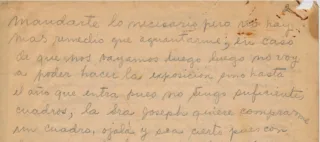 mandarte lo necesario pero no hay
mas remedio que aguantarme; en caso
de que nos vayamos luego luego no voy
a poder hacer la exposición sino hasta
el año que entra pues no tengo suficientes
cuadros; la Sra Joseph quiere comprarme
un cuadro, ojalá y sea cierto pues con